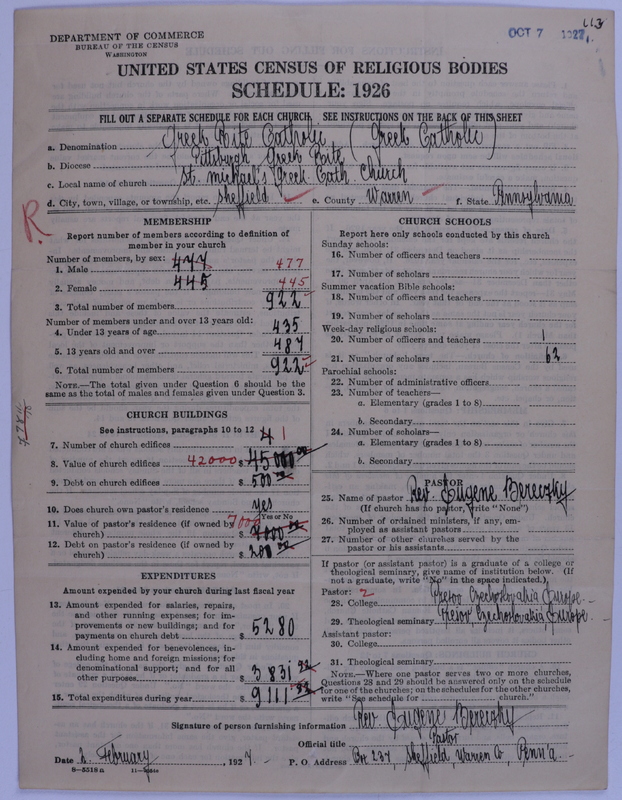 113
OCT 7 1927
DEPARTMENT OF COMMERCE
BUREAU OF THE CENSUS
WASHINGTON
UNITED STATES CENSUS OF RELIGIOUS BODIES
SCHEDULE: 1926
FILL OUT A SEPARATE SCHEDULE FOR EACH CHURCH. SEE INSTRUCTIONS ON THE BACK OF THIS SHEET
a. Denomination Greek Rite Catholic (Greek Catholic)
b. Diocese Pittsburgh Greek Rite
c. Local name of church St. Michael's Greek Cath. Church
d. City, town, village, or township, etc. Sheffield e. County Warren f. State Pennsylvania
R.
MEMBERSHIP
Report number of members according to definition of
member in your church
Number of members, by sex:
1. Male 477 477
2. Female 445 445
3. Total number of members 922
Number of members under and over 13 years old:
4. Under 13 years of age 435
5. 13 years old and over 487
6. Total number of members 922
NOTE.—The total given under Question 6 should be
same as the total of males and females given under Question 3.
CHURCH BUILDINGS
See instructions, paragraphs 10 to 12
7. Number of church edifices 1
8. Value of church edifices 42000 $ 45000 00
9. Debt on church edifices $ 500
10. Does church own pastor's residence? yes
Yes or No
11. Value of pastor's residence (if owned by
church) 7000 $ 4000 00
12. Debt on pastor's residence (if owned by
church) $ 200 00
EXPENDITURES
Amount expended by your church during last fiscal year
13. Amount expended for salaries, repairs,
and other running expenses; for im-
provements or new buildings; and for
payments on church debt $ 5280
14. Amount expended for benevolences, in-
cluding home and foreign missions; for
denominational support; and for all
other purposes $ 3831
15. Total expenditures during year $ 9111
CHURCH SCHOOLS
Report here only schools conducted by this church
Sunday schools:
16. Number of officers and teachers
17. Number of scholars
Summer vacation Bible schools:
18. Number of officers and teachers
19. Number of scholars
Week-day religious schools:
20. Number of officers and teachers 1
21. Number of scholars 62
Parochial schools:
22. Number of administrative officers
23. Number of teachers—
a. Elementary (grades 1 to 8)
b. Secondary
24. Number of scholars—
a. Elementary (grades 1 to 8)
b. Secondary
PASTOR
25. Name of pastor Rev. Eugene Bereczky
(If church has no pastor, write "None")
26. Number of ordained ministers, if any, em-
ployed as assistant pastors
27. Number of other churches served by the
pastor or his assistants
If pastor (or assistant pastor) is a graduate of a college or
theological seminary, give name of institution below. (If
not a graduate, write "No" in the space indicated.)
Pastor: 2
28. College Czechoslovakia Europe
29. Theological seminary Czechoslovakia Europe
Assistant pastor:
30. College
31. Theological seminary
NOTE.—Where one pastor serves two or more churches,
Questions 28 and 29 should be answered only on the schedule
for one of the churches; on the schedules for the other churches,
write "See schedule for church."
Signature of person furnishing information Rev. Eugene Bereczky
Official title Pastor
Date 2. February, 1927. P. O. Address Box 237, Sheffield, Warren Co, Penn'a
8—5518a